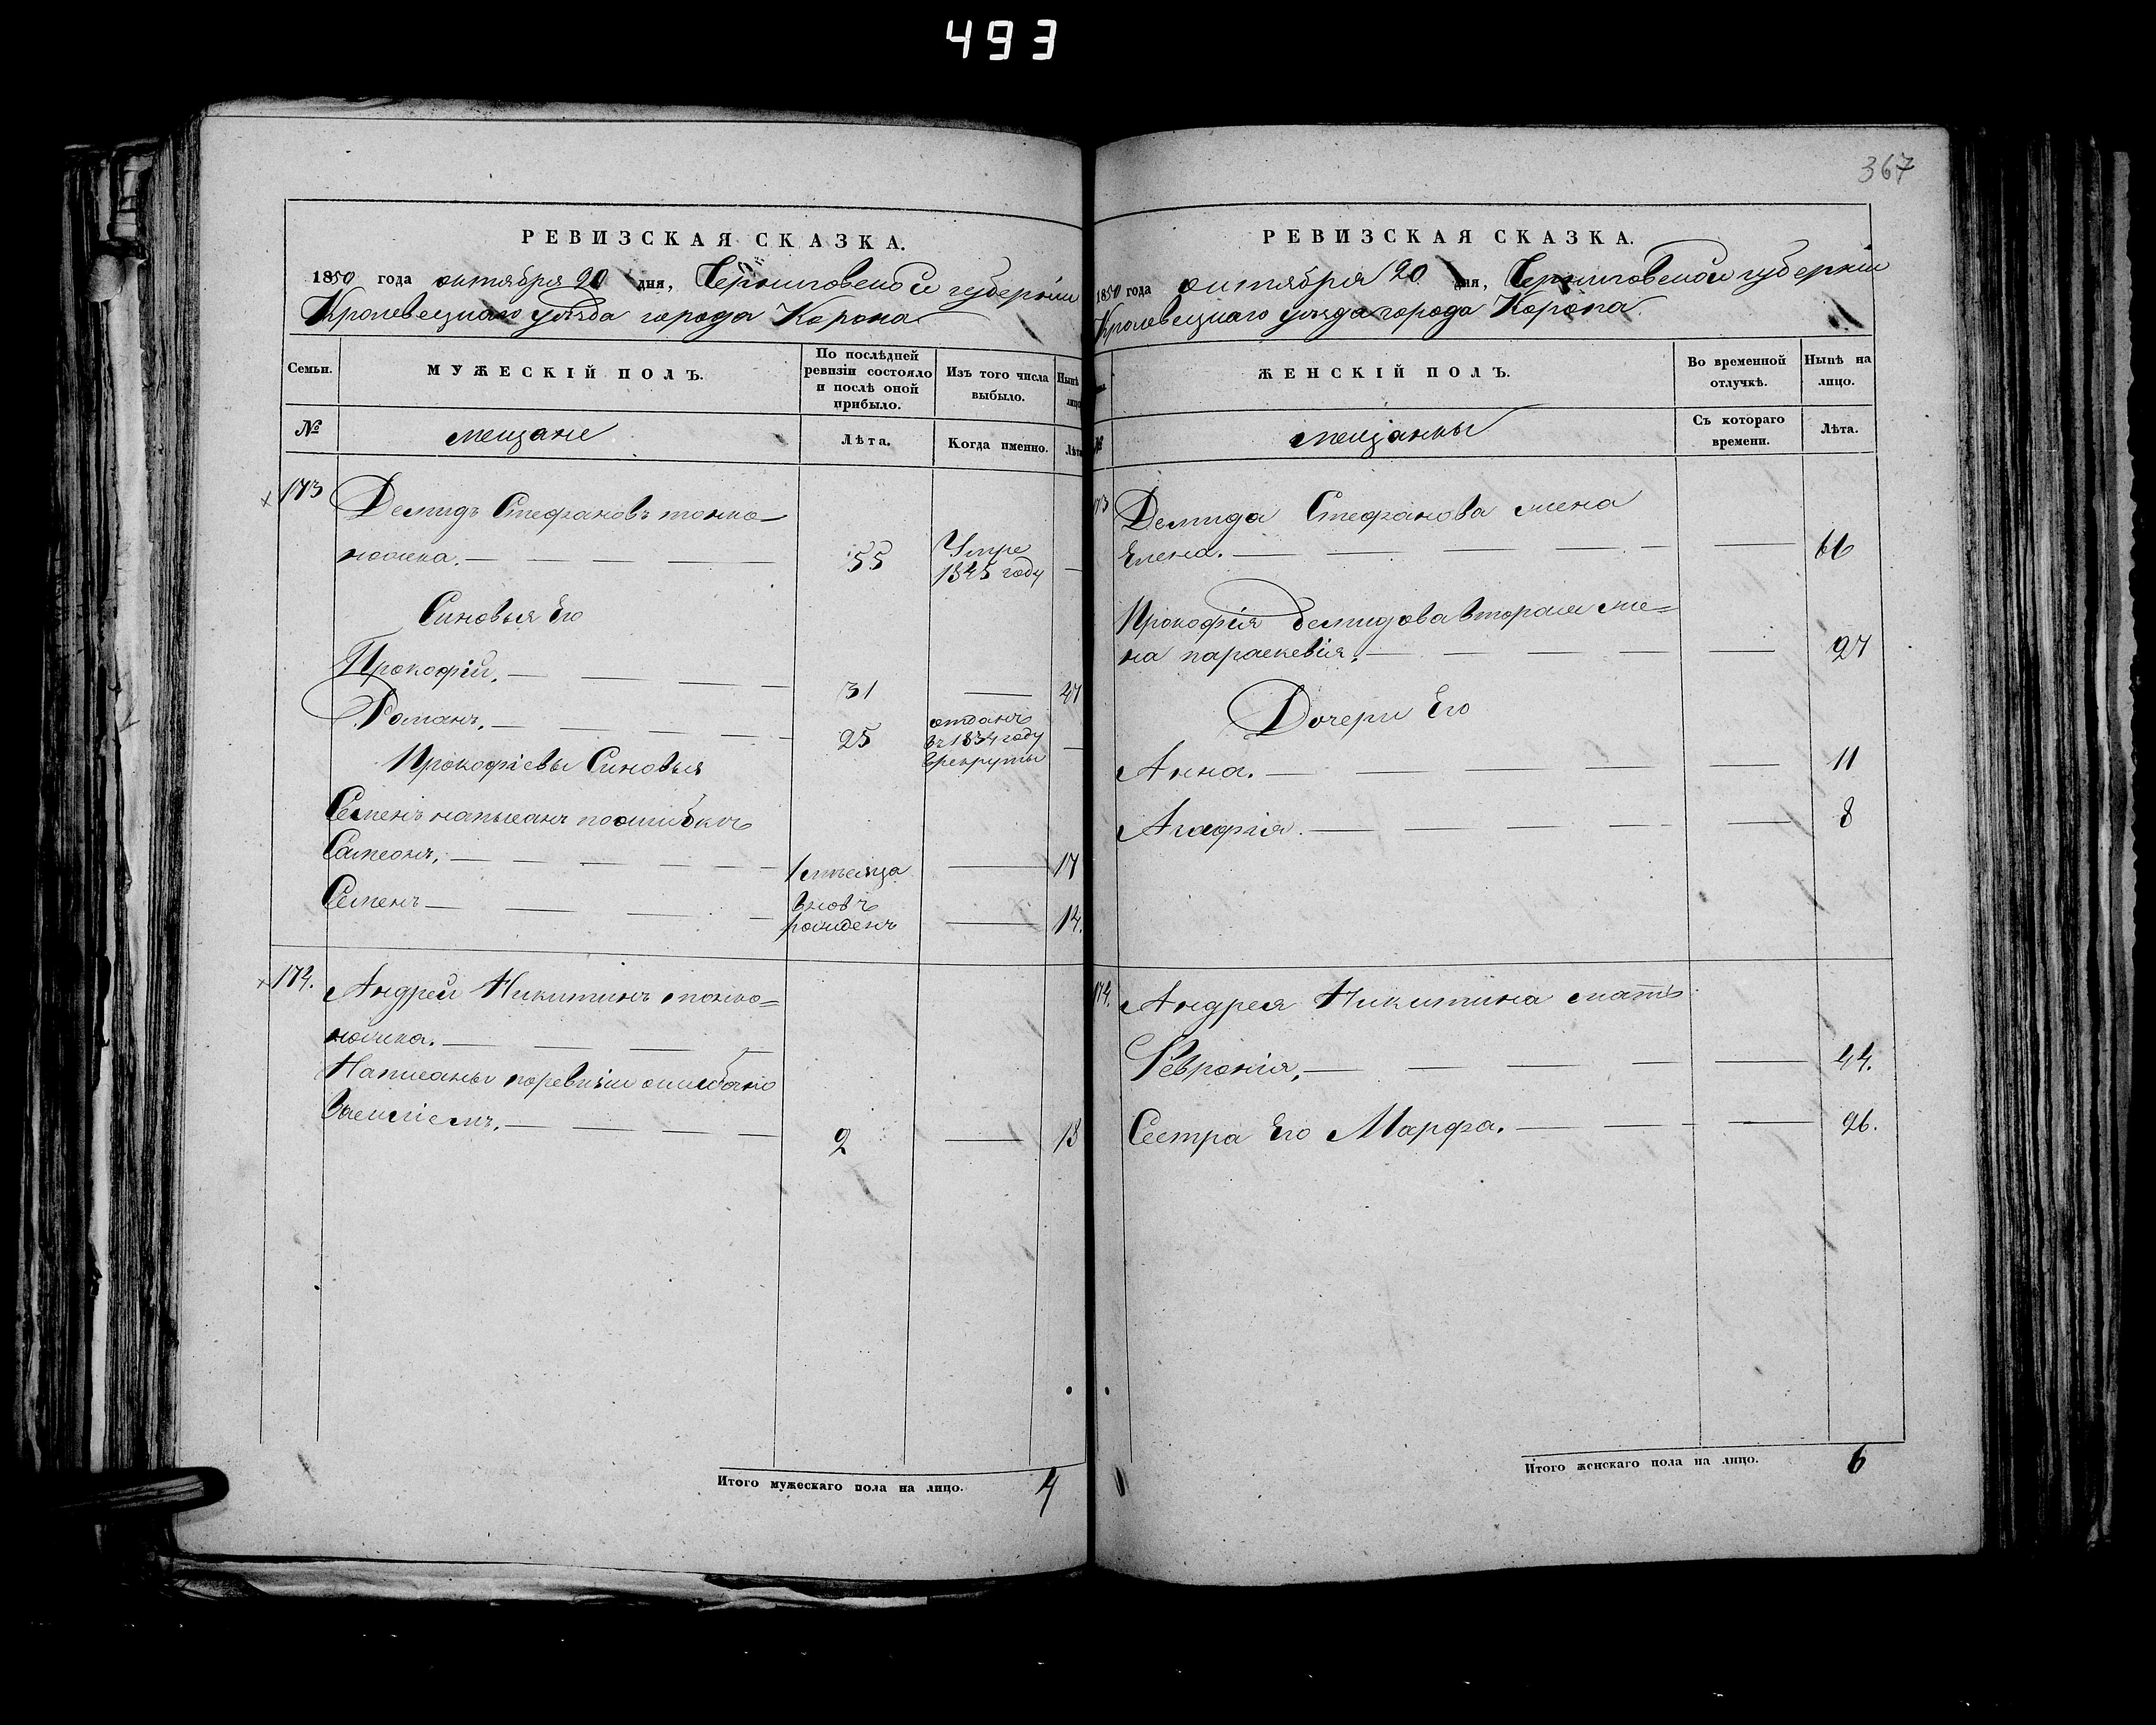 493
РЕВИЗСКАЯ СКАЗКА.
1850 года октября 20 дня, Черниговской губерніи
Кролевецкаго уѣзда города Коропа
Семьи.
МУЖЕСКІЙ ПОЛЪ.
По послѣдней ревизіи состояло и послѣ оной прибыло.
Изъ того числа выбыло.
Нынѣ лицо
№
мещане
Лѣта.
Когда именно.
Лѣта
173
Демидъ Стефановъ тонко-
ножка. 55 Умре 1845 году
Синовья Его
Прокофій. 31 47
Романъ. 25 отданъ въ 1834 году врекруты
Прокофіевы Синовья
Семенъ написанъ поошибкѣ
Самсонъ. 1 месяца 17
Семенъ вновь рожденъ 14.
174. Андрей Никитинъ тонко=
ножка.
Написаны поревизіи ошибочно
2 18
Итого мужескаго пола на лицо. 4
367
РЕВИЗСКАЯ СКАЗКА.
1850 года октября 20 дня, Черниговской губерніи
Кролевецкаго уѣзда города Коропа.
ЖЕНСКІЙ ПОЛЪ.
Во временной отлучкѣ.
Нынѣ на лицо.
№
мещанки
Съ котораго времени.
Лѣта.
173
Демида Стефанова жена
Елена. 66
Прокофія Демидова вторая же=
на параскевія. 27
Дочери Его
Анна. 11
Агафія. 8
174. Андрея Никитина мать
Февронія. 44.
Сестра Его Марфа. 26.
Итого женскаго пола на лицо. 6